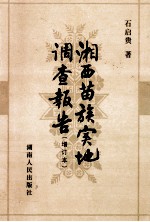 石启贵 著
湘西苗族实地
调查报告
(增订本)
湖南人民出版社